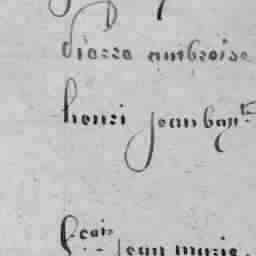 Piarra ambroise
henri jean bapte
fcois jean marie